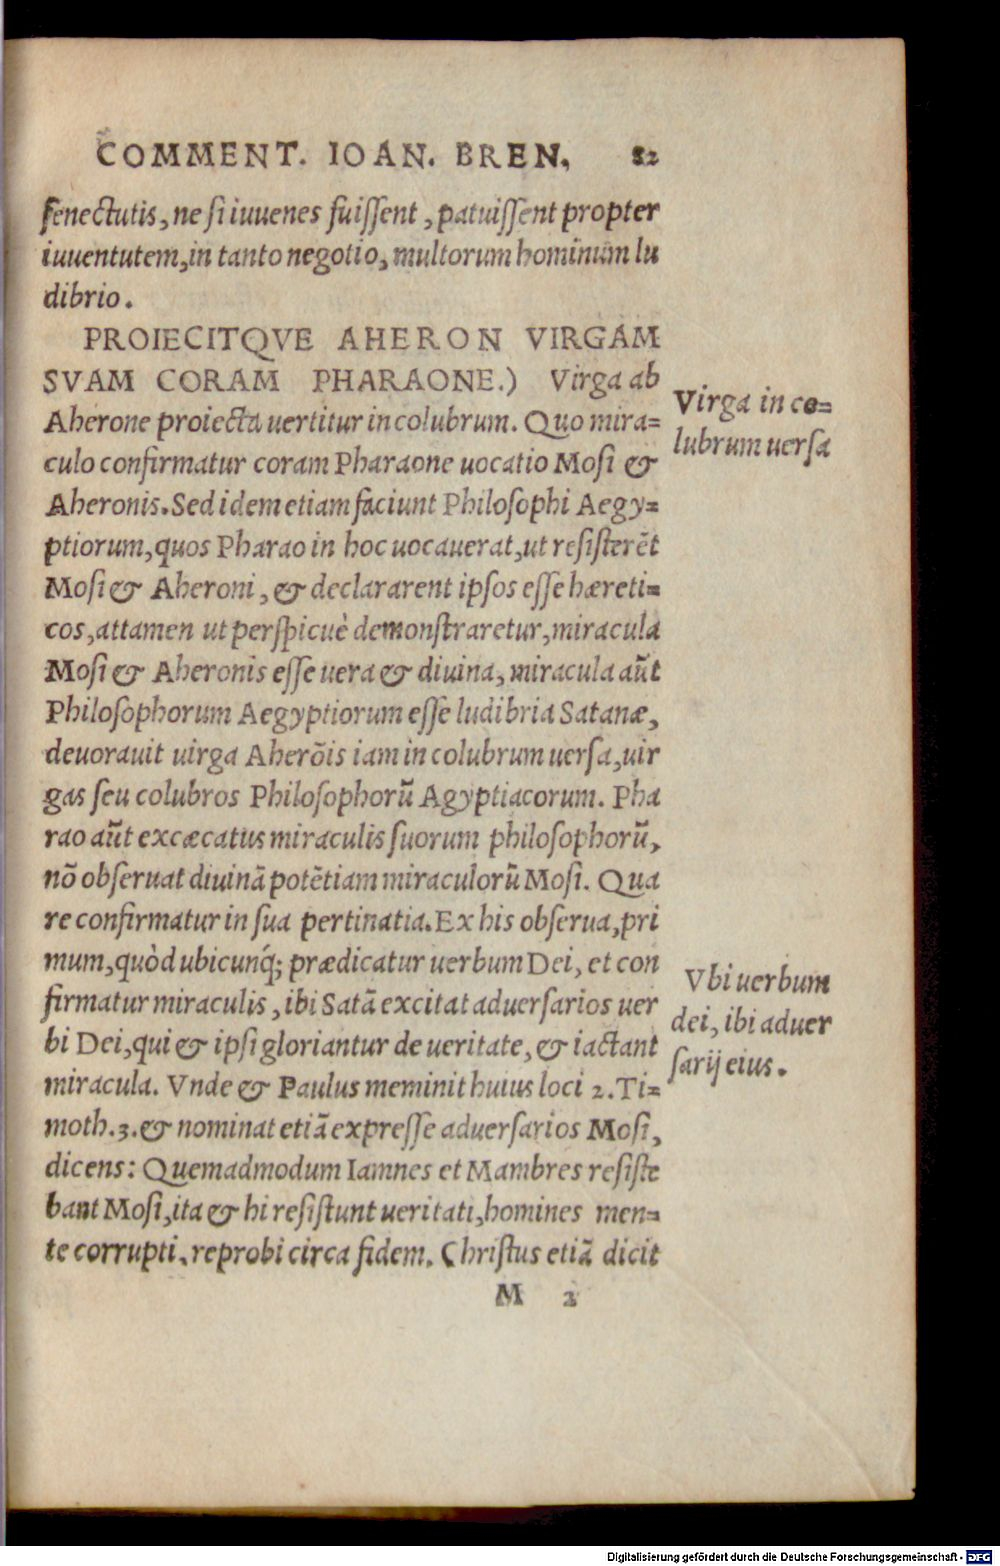 COMMENT. IOAN. BREN. 82
senectutis, ne si iuuenes fuissent, patuissent propter
iuuentutem, in tanto negotio, multorum hominum lu
dibrio.
PROIECITQVE AHERON VIRGAM
SVAM CORAM PHARAONE.) Virga ab
Aherone proiecta uertitur in colubrum. Quo mira=
culo confirmatur coram Pharaone uocatio Mosi &
Aheronis. Sed idem etiam faciunt Philosophi Aegy=
ptiorum, quos Pharao in hoc uocauerat, ut resisterēt
Mosi & Aheroni, & declararent ipsos esse hæreti=
cos, attamen ut perspicuè demonstraretur, miracula
Mosi & Aheronis esse uera & diuina, miracula aūt
Philosophorum Aegyptiorum esse ludibria Satanæ,
deuorauit uirga Aherōis iam in colubrum uersa, uir
gas seu colubros Philosophorū Agyptiacorum. Pha
rao aūt excæcatus miraculis suorum philosophorū,
nō obseruat diuinā potētiam miraculorū Mosi. Qua
re confirmatur in sua pertinatia. Ex his obserua, pri
mum, quòd ubicunq́; prædicatur uerbum Dei, et con
firmatur miraculis, ibi Satā excitat aduersarios uer
bi Dei, qui & ipsi gloriantur de ueritate, & iactant
miracula. Vnde & Paulus meminit huius loci 2. Ti=
moth. 3. & nominat etiā expresse aduersarios Mosi,
dicens: Quemadmodum Iamnes et Mambres resiste
bant Mosi, ita & hi resistunt ueritati, homines men=
te corrupti, reprobi circa fidem. Christus etiā dicit
M 2
Virga in co=
lubrum uersa
Vbi uerbum
dei, ibi aduer
sarij eius.
Digitalisierung gefördert durch die Deutsche Forschungsgemeinschaft - DFG